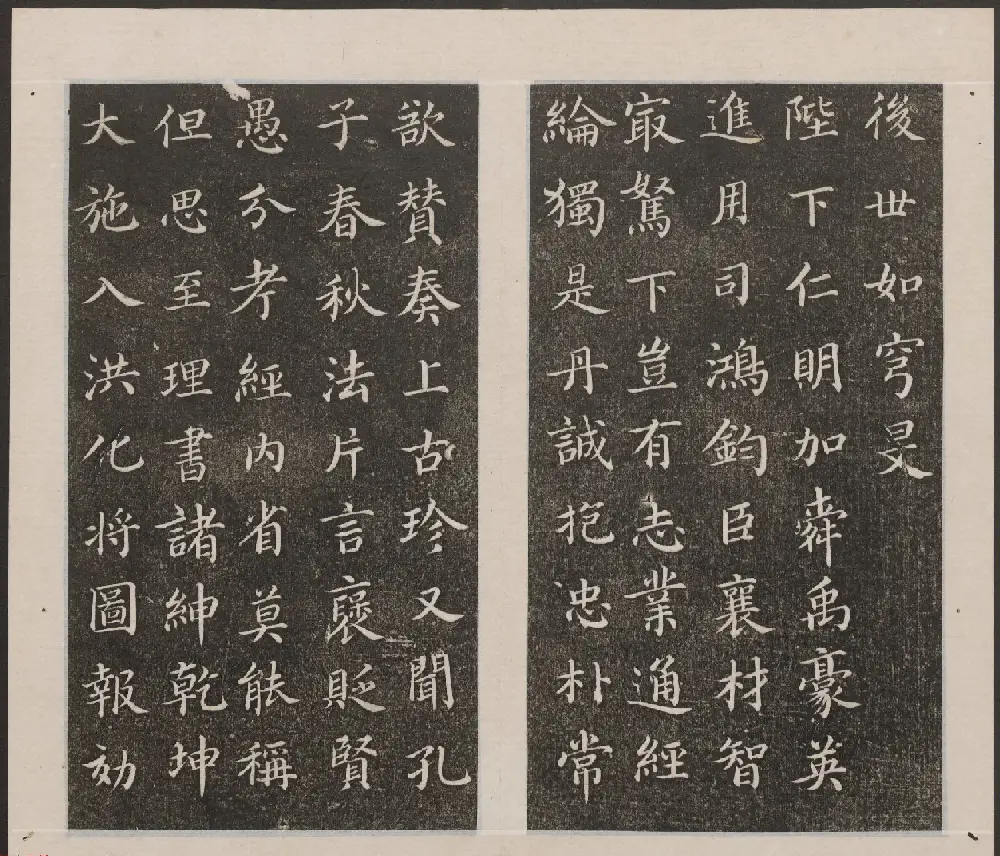 後世如穹旻
陛下仁明加舜禹豪英
進用司鴻鈞臣襄材智
冣駑下豈有志業通經
綸獨是丹誠抱忠朴常
欲賛奏上古珍又聞孔
子春秋法片言襃貶賢
愚分考經內省莫能稱
但思至理書諸紳乾坤
大施入洪化將圖報効